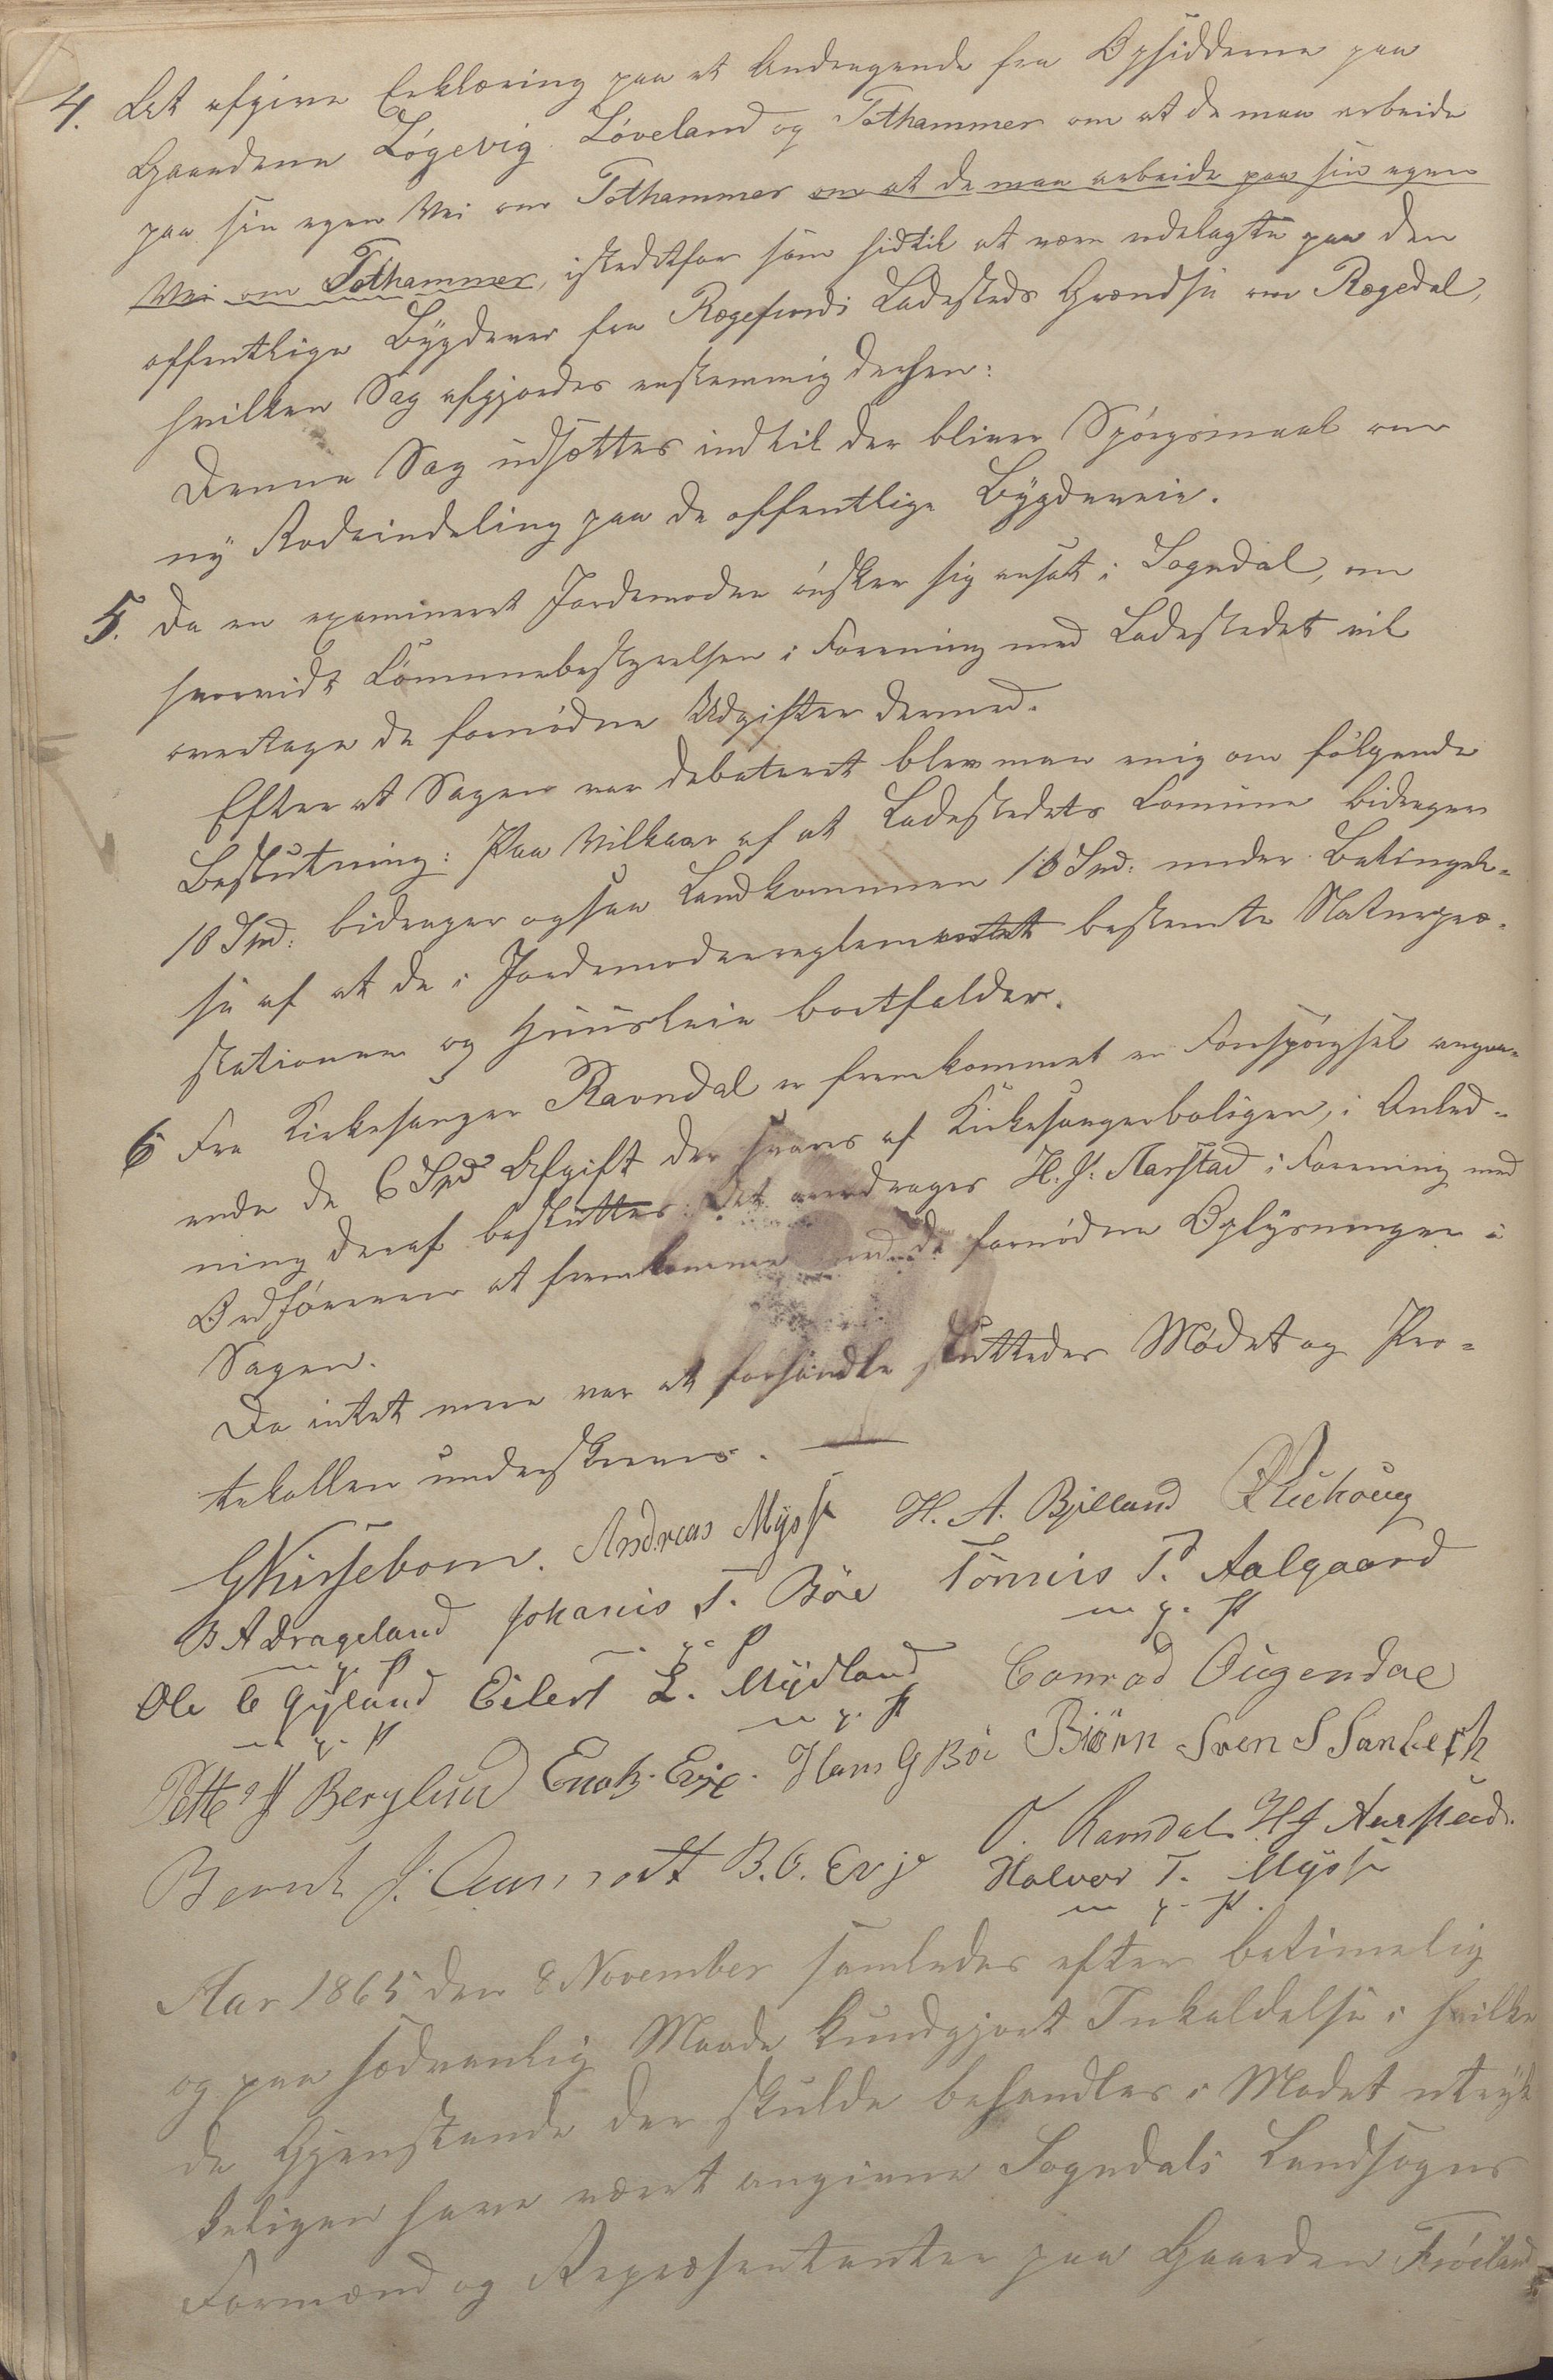 4. At afgive Erklæring paa et Andragende fra Opsidderne paa
Gaardene Løgevig Løveland og Tothammer om at de maa arbeide
paa sin egen Vei om Tothammer om at de maa arbeide paa sin egen
Vei om Tothammer, istedetfor som hidtil at være udelagte paa den
offentlige Bygdevei fra Rægefjords Ladesteds Grændse om Rægedal,
hvilken Sag afgjordes enstemmig derhen:
Denne Sag udsættes indtil der bliver Spørgsmaal om
ny Rodeindeling paa de offentlige Bygdeveie.
5. Da en examineret Jordemoder ønsker sig ansat i Sogndal, om
hvorvidt Communebestyrelsen i Forening med Ladestedet vil
overtage de fornødne Udgifter dermed.
Efter at Sagen var debateret blev man enig om følgende
Beslutning: Paa Vilkaar af at Ladestedets Comune bidrager
10 Spd: bidrager ogsaa Landkommunen 10 Spd: under Betingel-
se af at de i Jordemoderreglementet bestemte Naturpræ-
stationer og Huusleie bortfalder.
6 Fra Kirkesanger Ravndal er fremkommet en Forespørgsel angaa-
ende de 6 Spd Afgift der svares af Kirkesangerboligen, i Anled-
ning deraf besluttes: Det overdrages H. J. Aarstad i Forening med
Ordføreren at fremkomme med de fornødne Oplysninger i
Sagen.
Da intet mere var at forhandle sluttedes Mødet og Pro-
tokollen underskreves.
GKirsebom. Andreas Mysse H. A. Bjelland
B A Drageland Johanis T. Böe Tönnis T. Aalgaard
m. p. P m. p. P m. p. P
Ole C Gyland Eilert L. Mydland Conrad Ougendal
m. p. P m. p. P
Petter J Berglund Enok. Evje. Hans G Böe Biörn Sven S Sanbech
O. Ravndal HJ Aarstad.
Bernt J. Aamodt B. O. Evje Halvor T. Mysse
m. p. P.
Aar 1865 den 8 November samledes efter betimelig
og paa sædvanlig Maade kundgjort Inkaldelse i hvilke
de Gjenstande der skulde behandles i Mødet utryk
keligen have været angivne Sogndals Landsogns
Formænd og Repræsentanter paa Gaarden Frøiland